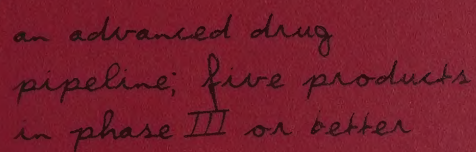 an advanced drug
pipeline; five products
in phase III or better